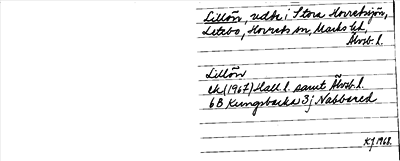 Lillön, udde i Stora Horredsjön,
Letebo, Horreds sn, Marks hd,
Älvsb. l.
Lillön
ek (1967) Hall. l. samt Älvsb. l.
6B Kungsbacka 3j Nabbared
KJ 1968.